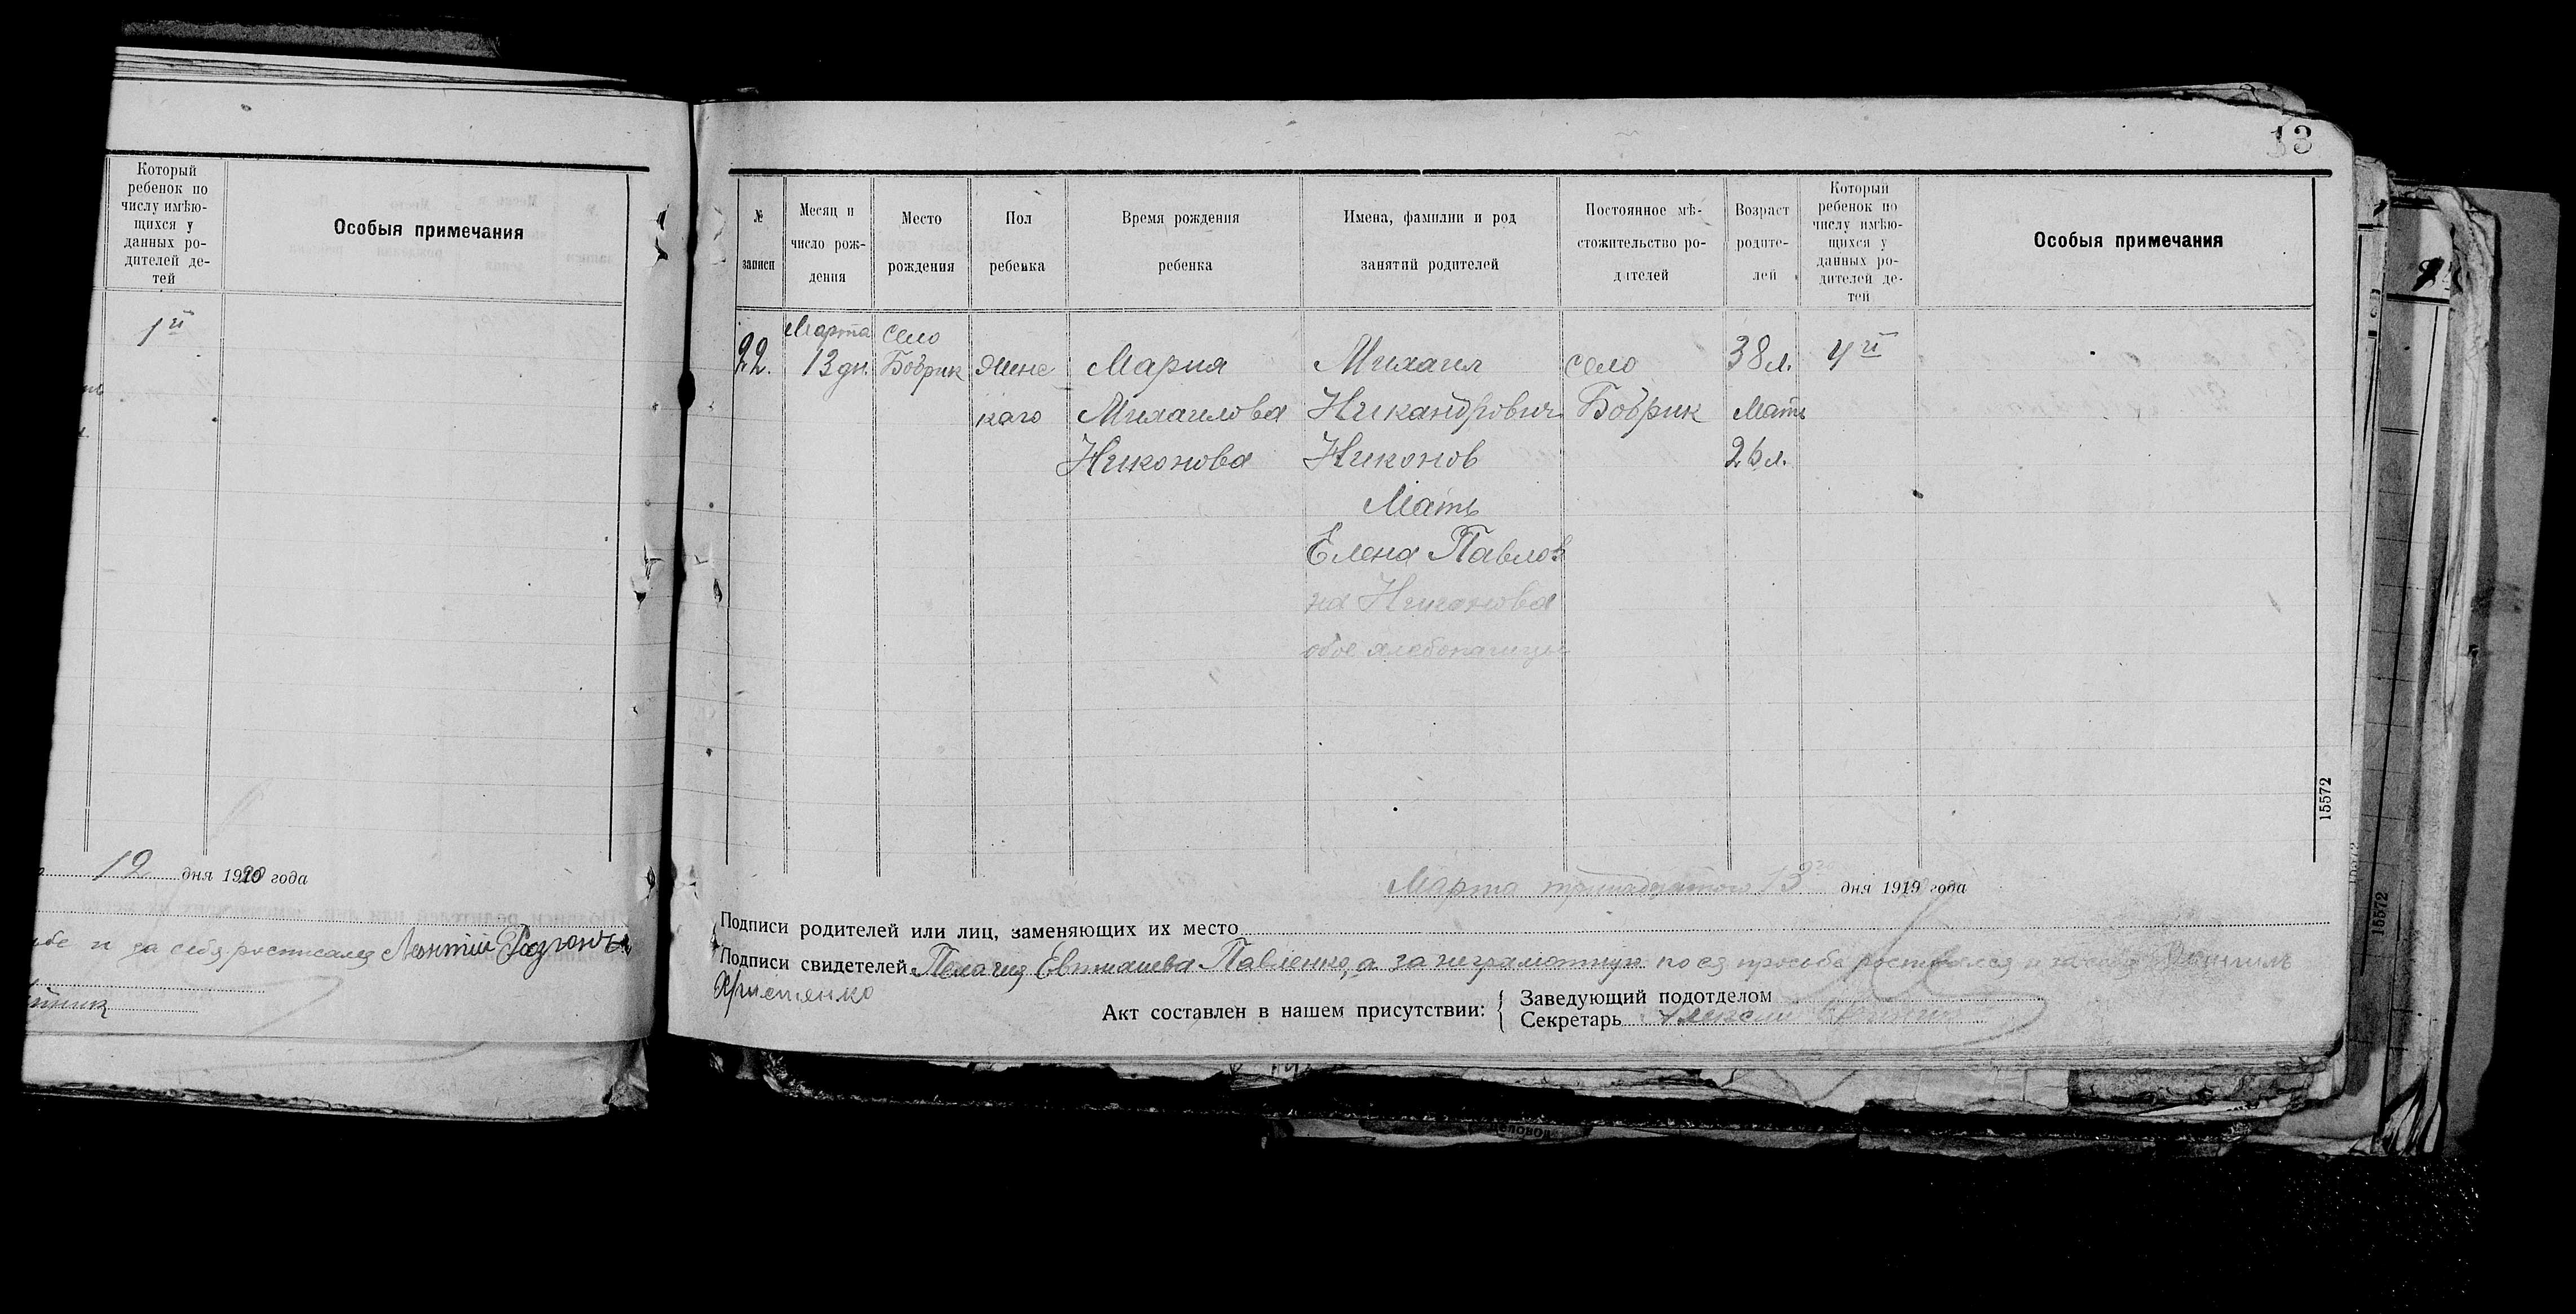 Который
ребенок по
числу имѣю-
щихся у
данных ро-
дителей де-
тей
Особыя примечания
1й
12 дня 1920 года
и за себя росписался Леонтий
13
№
записи
Месяц и
число рож-
дения
Место
рождения
Пол
ребенка
Время рождения
ребенка
Имена, фамилии и род
занятий родителей
Постоянное мѣ-
стожительство ро-
дителей
Возраст
родите-
лей
Который
ребенок по
числу имѣю-
щихся у
данных ро-
дителей де-
тей
Особыя примечания
22.
Марта
13 дн.
село
Бобрик
Женс
каго
Мария
Михаилова
Никонова
Михаил
Никандрович
Никонов
Мать
Елена Павлов
на Никонова
обое хлебопашцы
село
Бобрик
38 л.
Мать
26 л.
4й
15572
15572
Марта тринадцатого 13го дня 1919 года
Подписи родителей или лиц, заменяющих их место
Подписи свидетелей Пелагия Павленко, а за неграмотную по ея просьбе росписался и за себя Даниил
Христенко
Акт составлен в нашем присутствии:
Заведующий подотделом
Секретарь Алексей